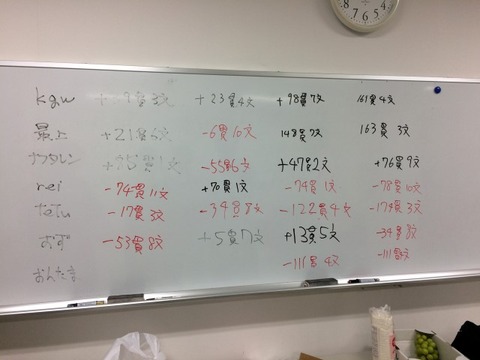 kgw +23貫4文 +98貫7文 161貫4文
最上 +21貫6文 -6貫10文 148貫7文 163貫3文
ナフタレン -55貫6文 +47貫2文 +76貫9文
rei -74貫11文 +70貫1文 -74貫1文 -78貫10文
tetu -17貫3文 -34貫8文 -122貫4文 -174貫3文
おず -53貫8文 +5貫7文 +13貫5文 -34貫8文
おんたま -111貫4文